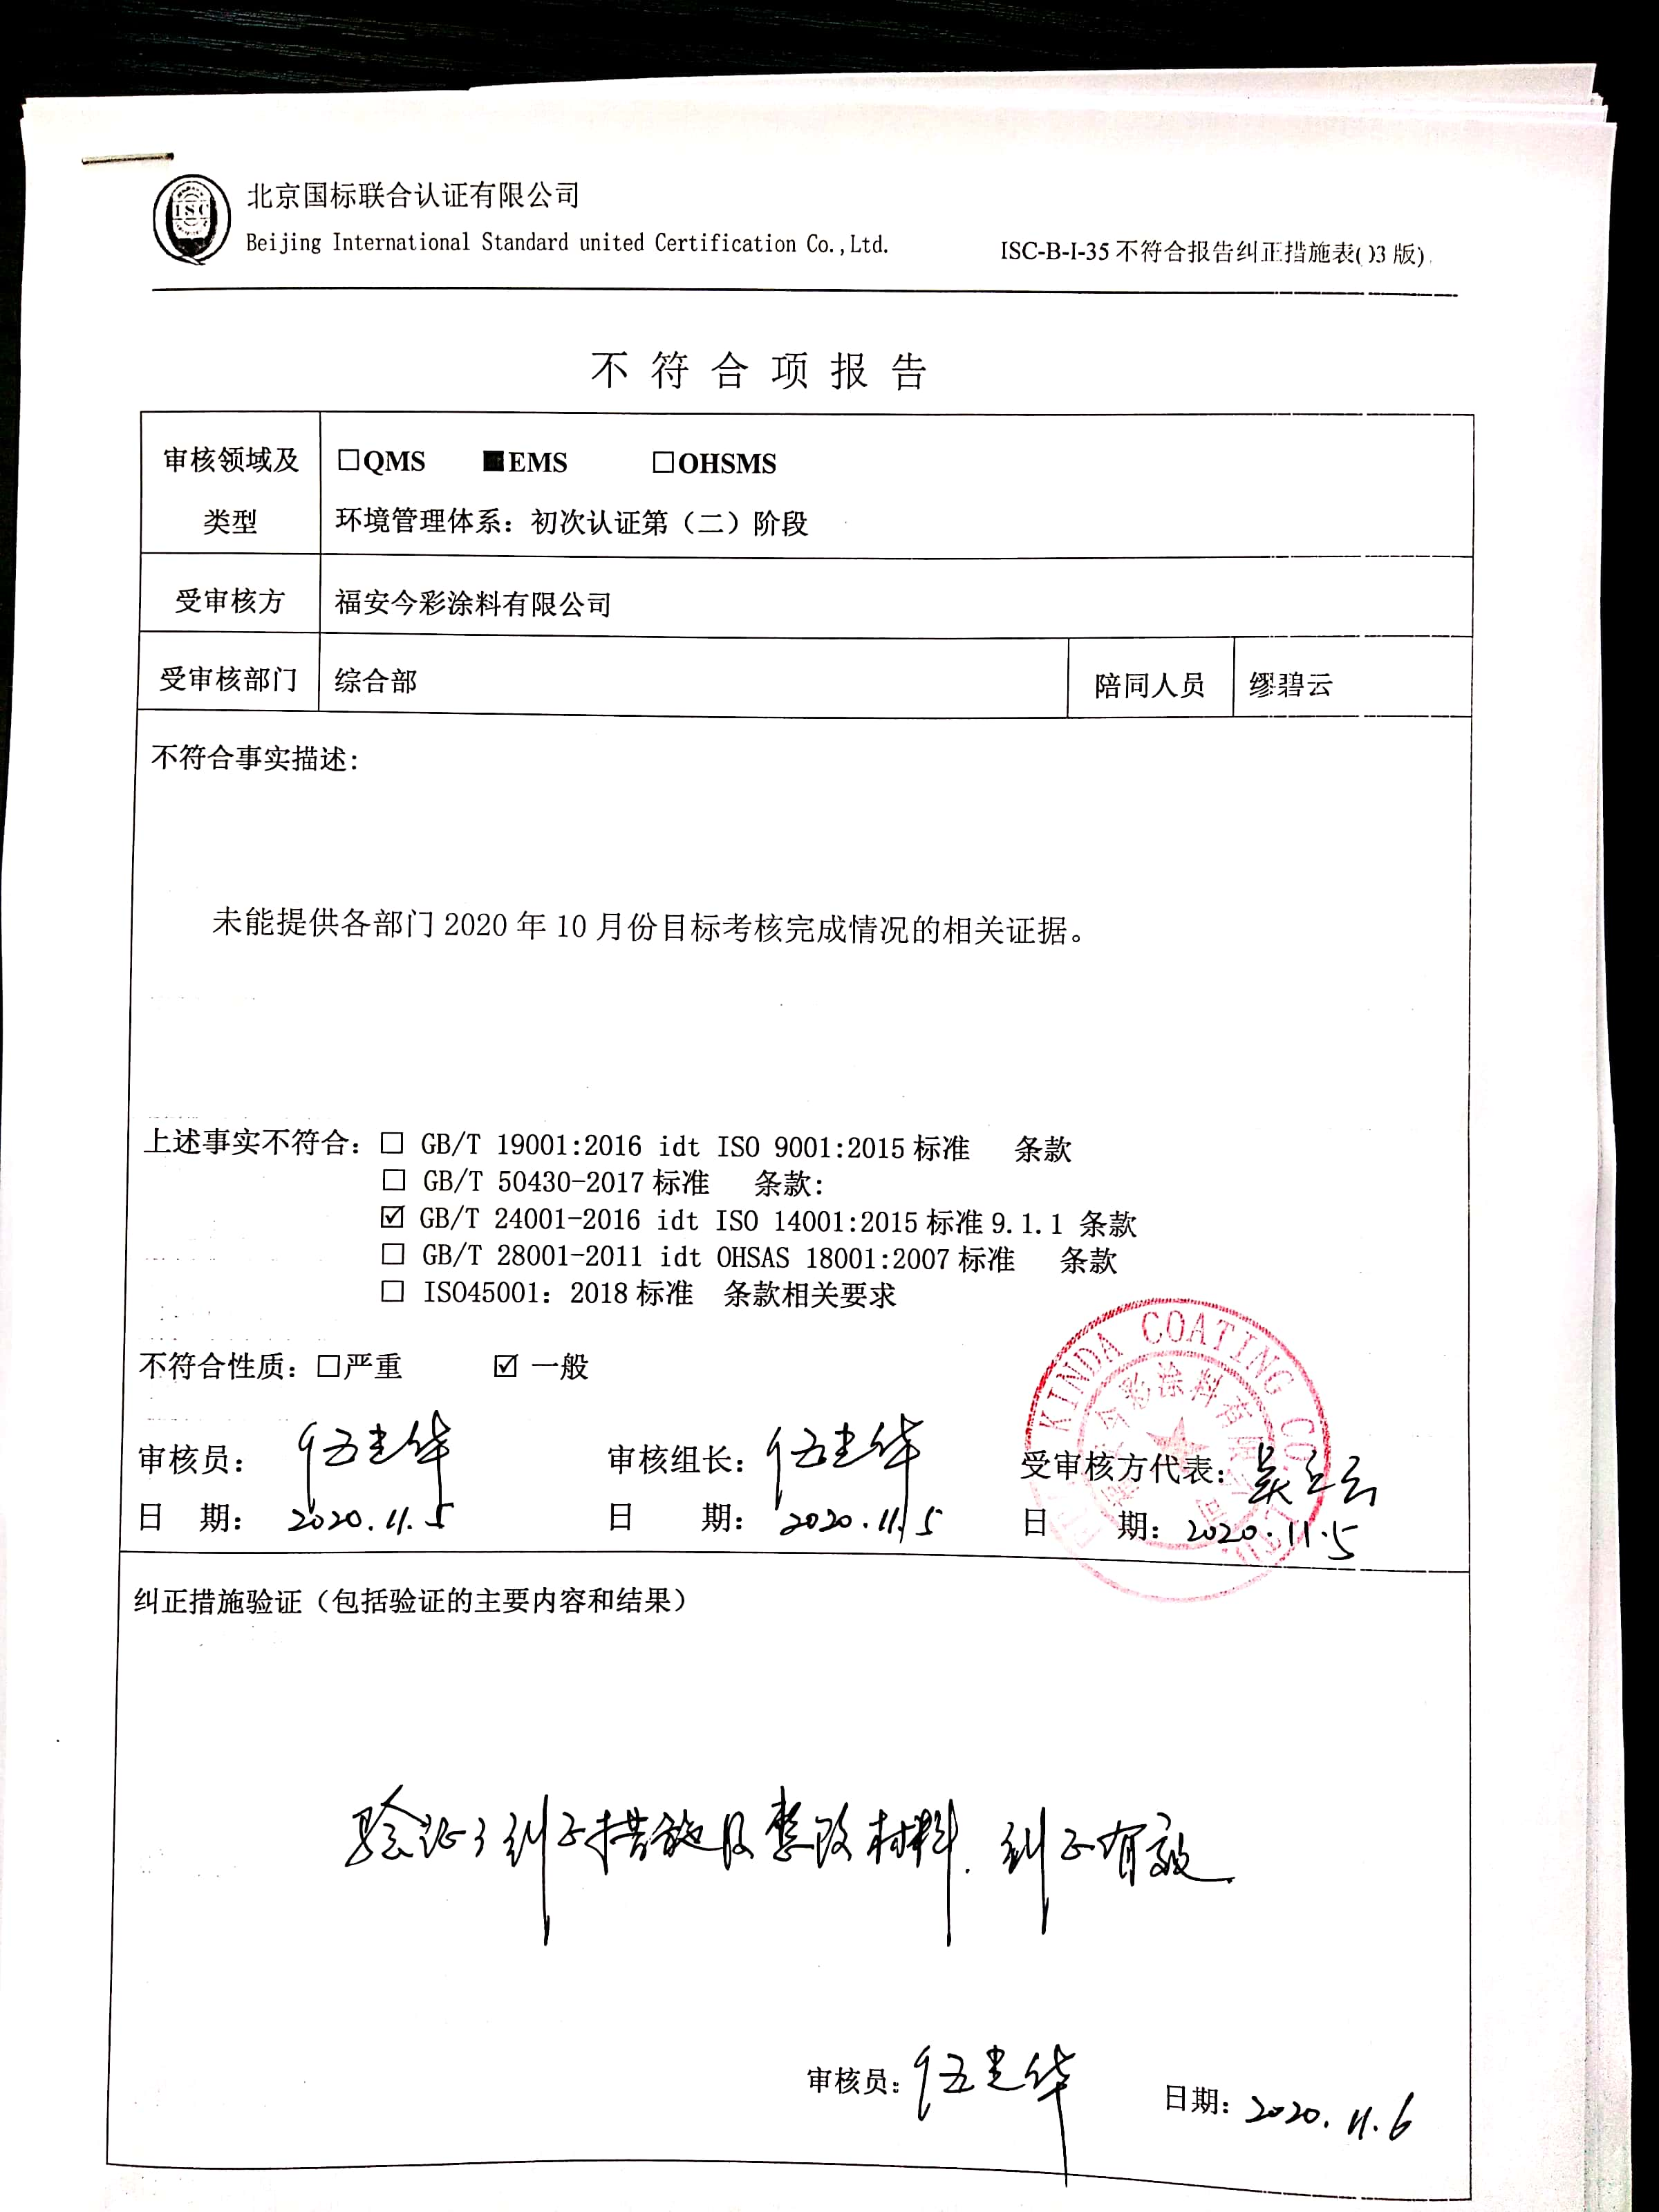 ISC
北京国标联合认证有限公司
Beijing International Standard united Certification Co.,Ltd.
ISC-B-I-35 不符合报告纠正措施表(03 版)
不符合项报告
审核领域及
类型
□QMS ■EMS □OHSMS
环境管理体系：初次认证第（二）阶段
受审核方 福安今彩涂料有限公司
受审核部门 综合部 陪同人员 缪碧云
不符合事实描述：
未能提供各部门 2020 年 10 月份目标考核完成情况的相关证据。
上述事实不符合：□ GB/T 19001:2016 idt ISO 9001:2015 标准 条款
□ GB/T 50430-2017 标准 条款：
☑ GB/T 24001-2016 idt ISO 14001:2015 标准 9.1.1 条款
□ GB/T 28001-2011 idt OHSAS 18001:2007 标准 条款
□ ISO45001：2018 标准 条款相关要求
不符合性质：□严重 ☑ 一般
审核员：伍建华 审核组长：伍建华 受审核方代表：
日 期：2020.11.5 日 期：2020.11.5 日 期：2020.11.5
KINDA COATING CO
今彩涂料有限公司
纠正措施验证（包括验证的主要内容和结果）
验证了纠正措施及整改材料.纠正有效.
审核员：伍建华 日期：2020.11.6